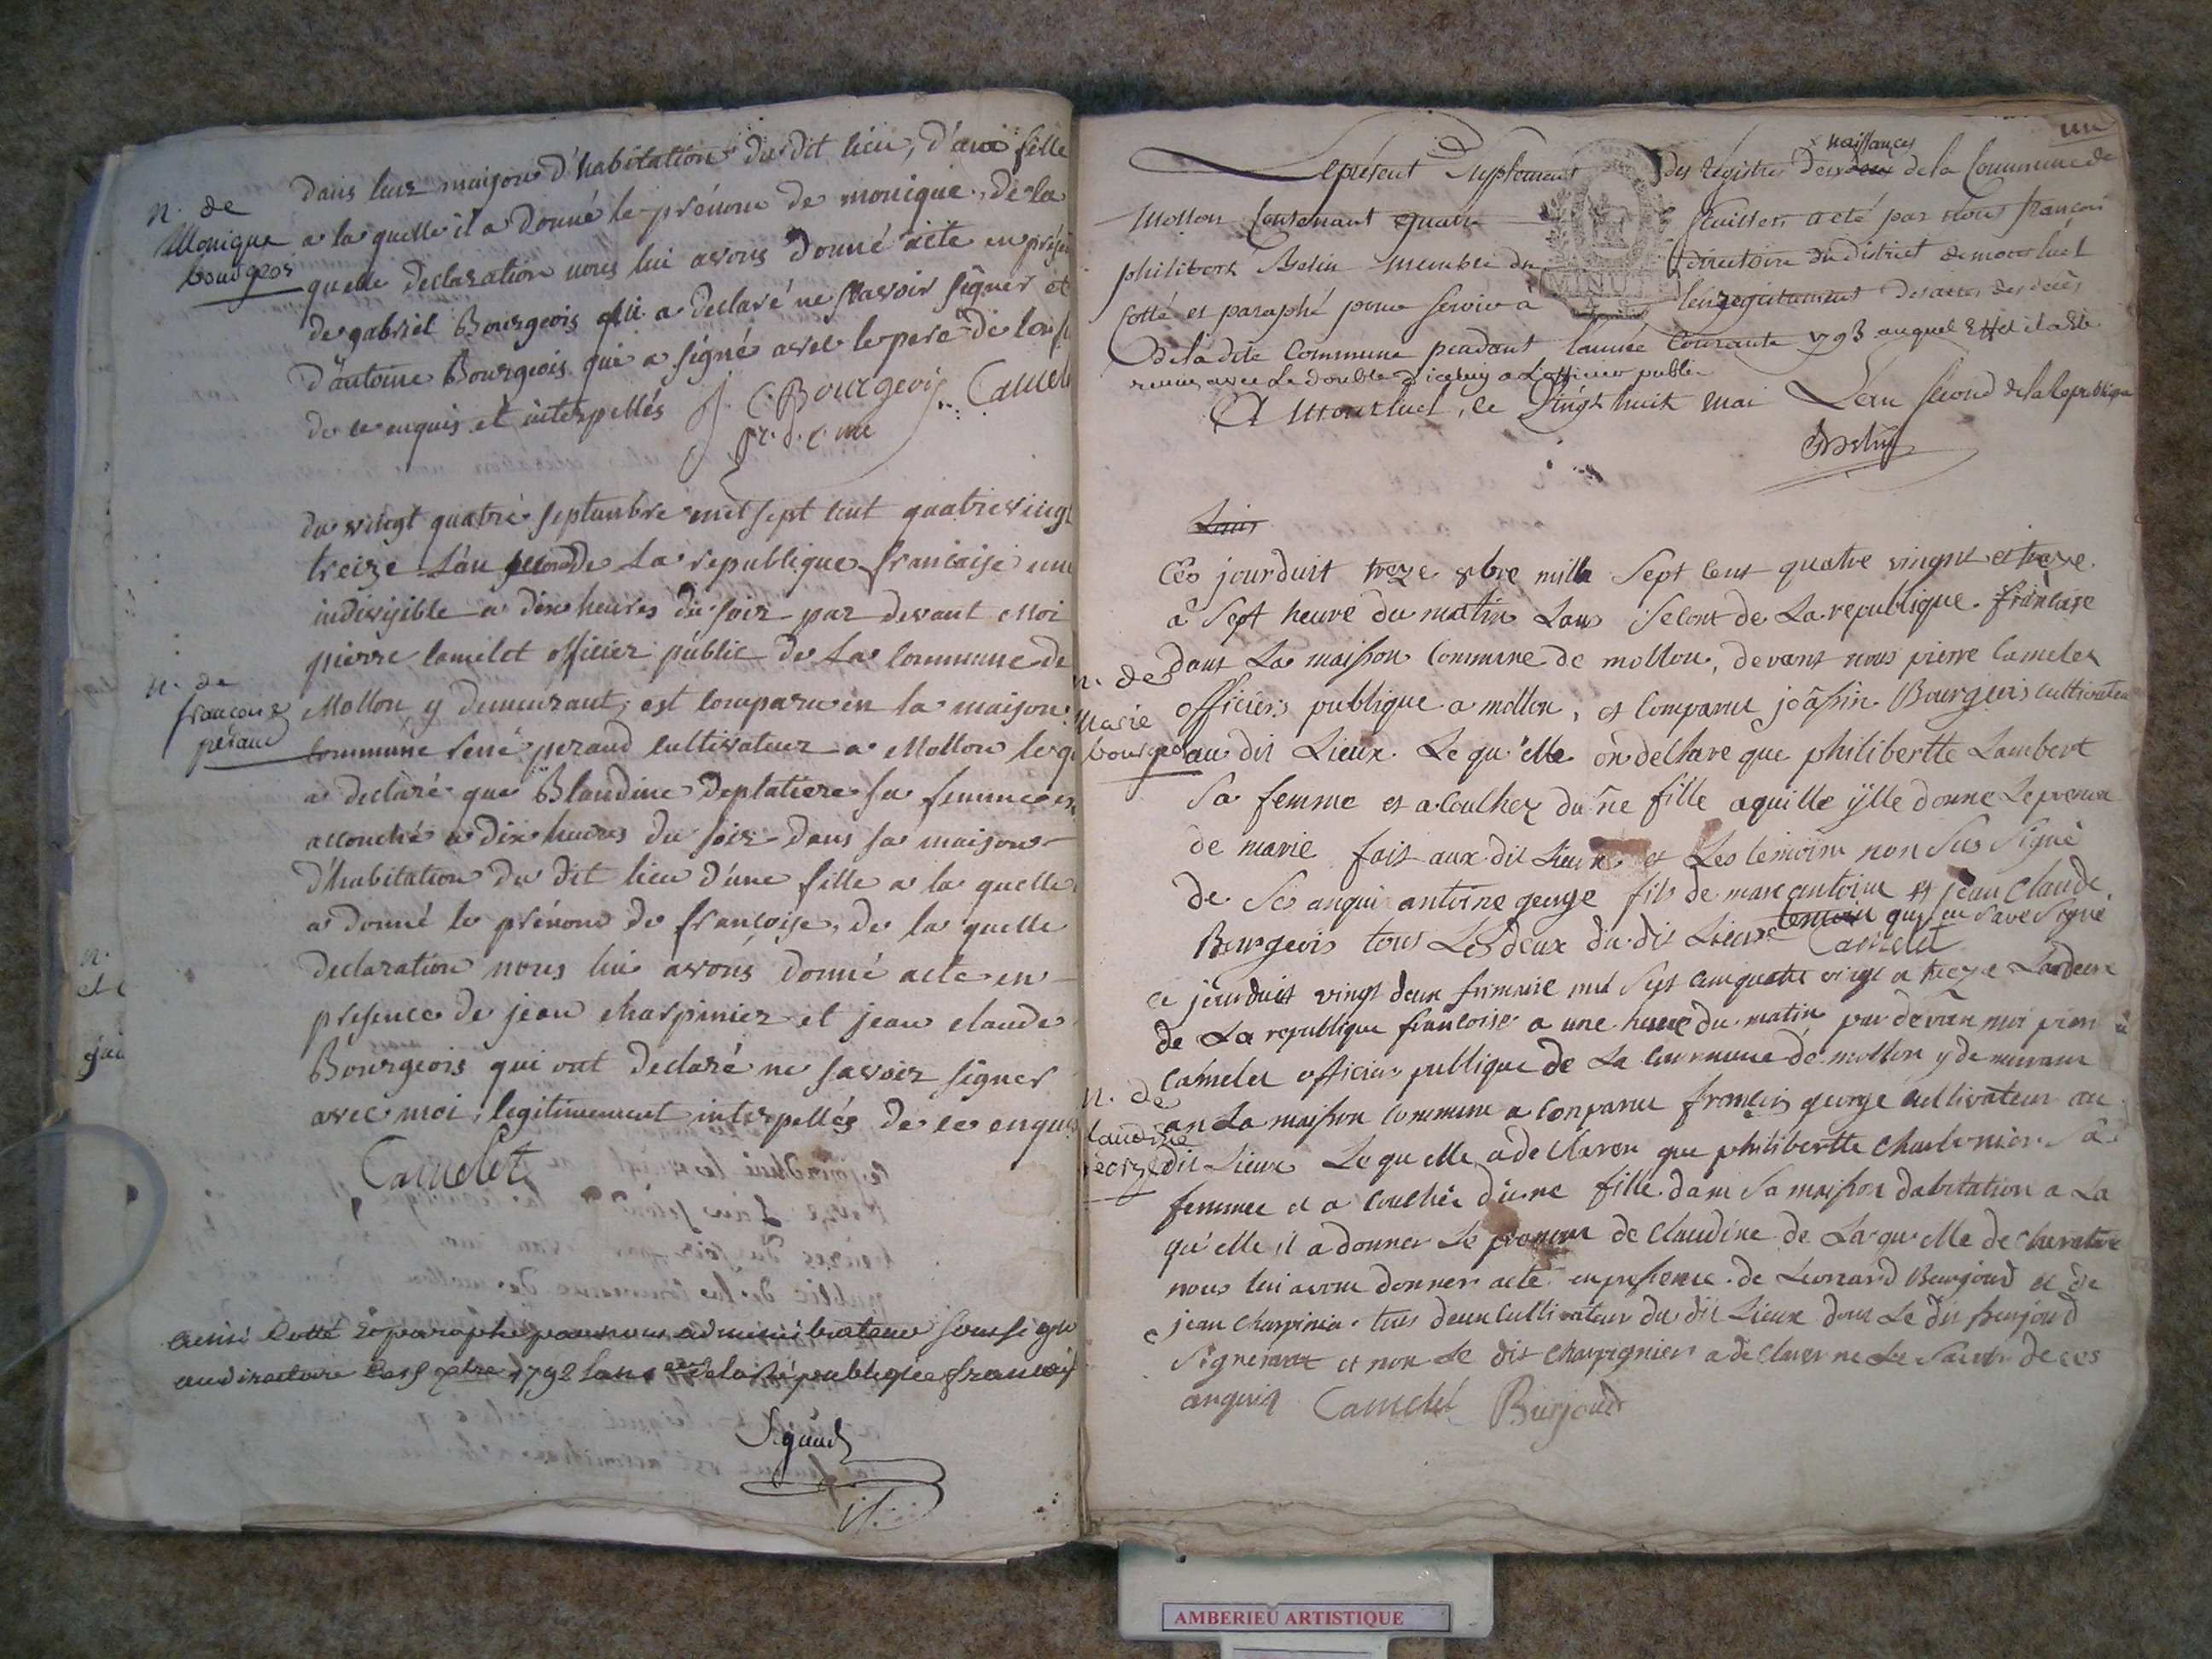 dans leur maison d'habitation du dit lieu, d'une fille
n. de
Monique
bourgeois
a la quelle il a donné le prénom de monique, de la
quelle declaration nous lui avons donné acte en présen
de gabriel Bourgeois qui a declaré ne scavoir signer et
d'antoine Bourgeois qui a signé avec le pere de l'enf
de ce enquis et interpellés J. C. Bourgeois Camelet
pr. d. c. me
du vingt quatre septembre mil sept cent quatre vingt
treize L'an second de La republique francaise une
indivisible a dix heures du soir par devant Moi
pierre Camelet officier public de La commune de
n. de
francoise
peraud
Mollon y demeurant, est comparu en la maison
commune rené peraud cultivateur a Mollon leq
a declaré que Blandine deplatiere sa femme est
accouché a dix heures du soir dans sa maison
d'habitation du dit lieu d'une fille a la quelle
a donné le prénom de francoise, de la quelle
declaration nous lui avons donné acte en
presence de jean charpinier et jean claude
Bourgeois qui ont declaré ne savoir signer
avec moi, legitimement interpellés de ce enquis
Camelet
ainsi Cotté et paraphé par nous administrateur soussigné
au directoire le 15 xbre 1792 l'an 1er de la Republique francais
Sigaud
un
Le présent Supplement des régistres des naissances de la Commune de
Mollon Contenant quatre feuillets a eté par Nous françois
philibert Belin membre du directoire du district de montluel
MINUTE
Cotté et paraphé pour servir a l'enregistrement des actes des décès
de la dite Commune pendant l'année Courante 1793 auquel Effet il a Eté
remis avec Le double d'iceluy a L'officier public
A Montluel, le Vingt huit Mai L'an second de la Republique
Belin
Louis
Ces jourduit treze 8bre mille Sept Cent quatre vingnt et treze
a Sept heure du matin Lans Selont de La republique francaise
n. de
Marie
bourgeois
dans La maison Commune de mollon, devant nous pierre Camelet
officiers publique a mollon, et Comparu joassin Bourgeois cultivateur
au dit Lieux. Le qu'elle on delhare que philibertte Lambert
Sa femme et a Coulhez du ne fille a quille ylle donne Le prenon
de marie fait aux dit Lieux et Les temoins non Sus Signé
de Ses anqui antoine george fils de marc antoine et jean Claude
Bourgeois tous Les deux du dit Lieux temoin qui on Save Signé
Camelet
ce jourduit vingt deux frimaire mil Sept Cen quatre vingt a treze Landeux
de La republique francoise a une heure du matin par devan moi pierre
Camelet officier publique de La Commune de mollon y demeurant
n. de
laudine
eorge
an La maison Commune a Conparue francois george cultivateur au
dit Lieux Le qu elle a de Claren que philibertte Charbenier Sa
femme et a Coulhée d'une fille dans Sa maison dabitation a La
qu'elle il a donner Le prenom de Claudine de La qu'elle de Claration
nous lui avons donner acte en presence de Léonard Burjoud et de
jean Charpinier tous deux Cultivateur du dit Lieux dont Le dit Burjoud
Signerat et non Le dit Charpignier a de Claver ne Le Savoir de ces
anquis Camelet Burjoud
AMBERIEU ARTISTIQUE